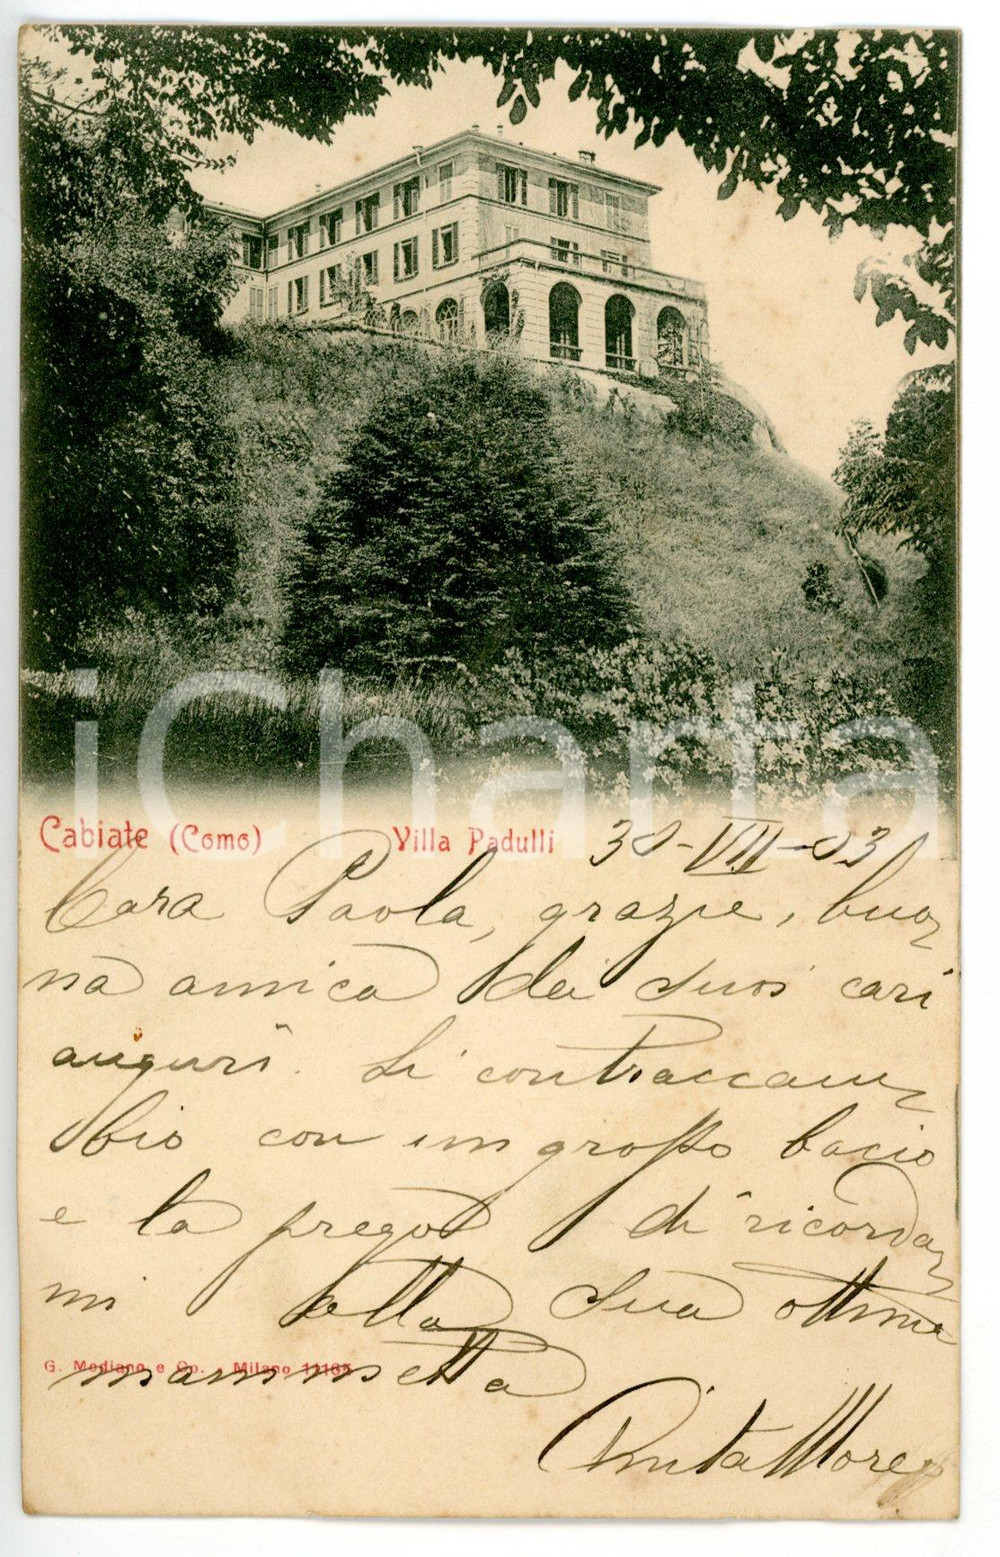 iCharta
Cabiate (Como) Villa Padulli 30-VII-03
Cara Paola, grazie, buo
na amica dei suoi cari
auguri. Li contraccam
bio con un grosso bacio
e la prego di ricordar
mi alla sua ottima
G. Modiano e Co. - Milano
mammetta